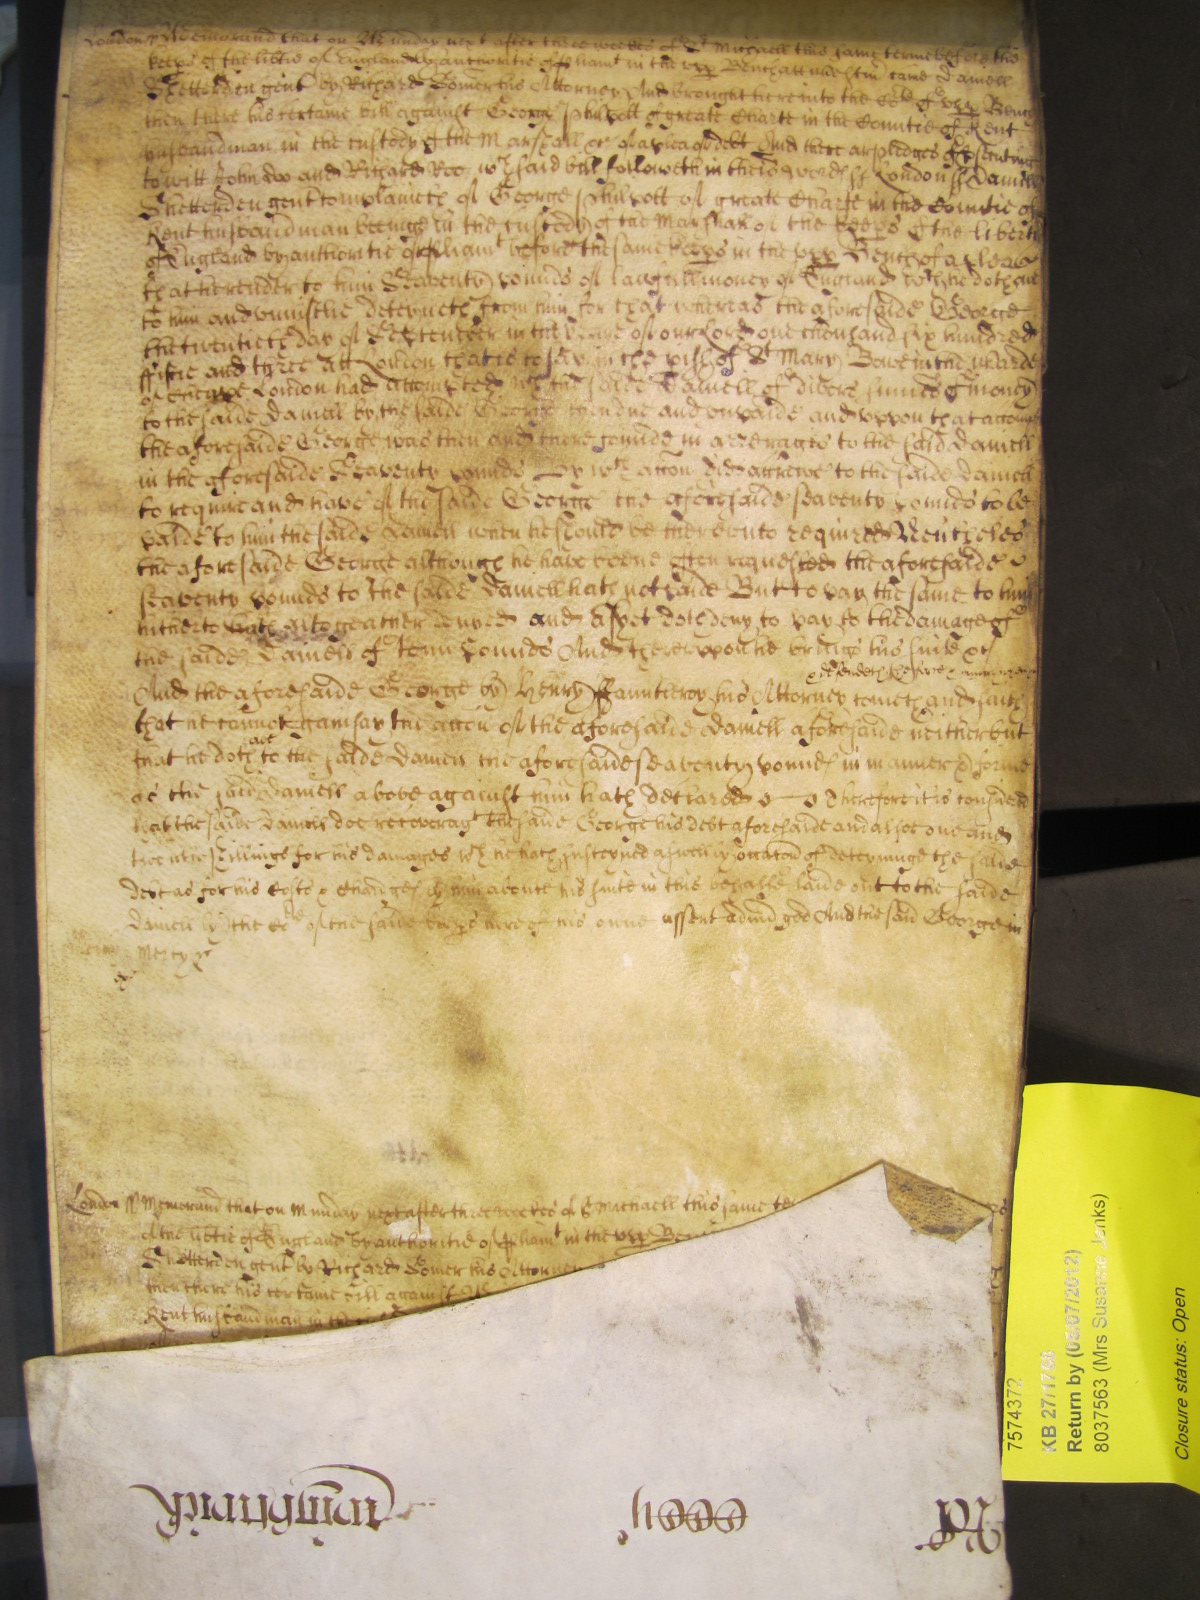 London ss Memorand that on Munday next after three weekes of St Michaell this same terme before the
keeps of the libtie of England by authoritie of pliamt in the upp Bench att westm came Daniell
Shetterden gent by Richard Comer his Attorney And brought here into the Cort of upp Bench
then there his certaine bill against George Philpott of greate Charte in the Countie of Kent
husbandman in the custody of the Marshall &c of a plea of debt And there are pledges of psecuting
to witt John Doo and Richard Roo wch said bill followeth in theis wordes ss London ss Daniell
Shetterden gent complaineth of George Philpott of greate Charte in the Countie of
Kent husbandman beeinge in the custody of the Marshall of the keeps of the libertie
of England by authoritie of pliamt before the same keeps in the upp Bench of a plea
that he render to him Seaventy pounds of lawfull money of England wch he doth owe
to him and uniustlie deteyneth from him for that whereas the aforesaide George
the twentieth day of September in the yeare of our Lord one thousand six hundred
fiftie and three att London that is to say in the pish of St Mary Bowe in the warde
of Cheape London had accompted wth the saide Daniell of divers summes of money
to the saide Daniell by the saide George then due and unpaide and uppon that accompt
the aforesaide George was then and there founde in arrerages to the said Daniell
in the aforesaide Seaventy pounds By wch accon did accrewe to the saide Daniell
to require and have of the saide George the aforesaide seaventy pounds to be
paide to him the saide Daniell when he should be thereunto required Neutheles
the aforesaide George although he have beene often requested the aforesaide
seaventy pounds to the saide Daniell hath not paide But to pay the same to him
hitherto hath altogeather denyed and as yet doth deny to pay to the damage of
the saide Daniell of tenn Pounds And thereuppon he brings his suite &c
defendeth the force
And the aforesaide George by Henry Fauntleroy his Attorney cometh and saith
that he cannot gainsay the accon of the aforesaid Daniell aforesaide neither but
that he doth owe to the saide Daniell the aforesaide seaventy pounds in manner & forme
as the said Daniell above against him hath declared Therefore it is considered
that the saide Daniell doe recover agt the saide George his debt aforesaide and alsoe one and
twentie shillings for his damages wch he hath susteyned aswell by occacon of deteyninge the saide
debt as for his Costs & Charges by him aboute his suite in this behalfe laide out to the saide
Daniell by the Cort of the saide keeps here of his owne assent adiudged And the said George in
mercy &c
London ss Memorand that on Munday next after three weekes of St Michaell this same te
of the libtie of England by authoritie of pliamt in the upp Ben
Shetterden gent by Richard Comer his Attorney
then there his certaine bill against
Kent husbandman in the
Rot
Wightwick
7574372
KB 27/1766
Return by (03/07/2012)
8037563 (Mrs Susanne Jenks)
Closure status: Open